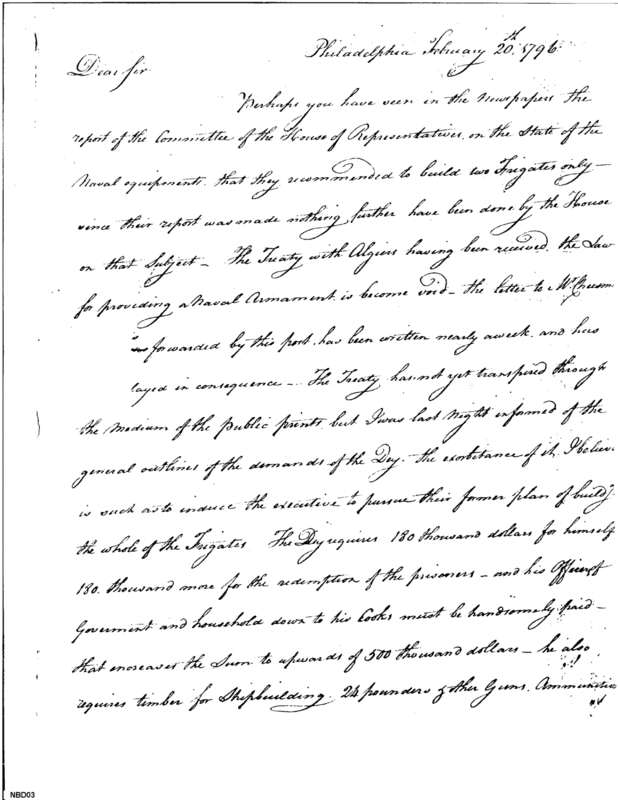 Philadelphia February 20th 1796
Dear Sir
Perhaps you have seen in the Newspapers the
report of the Committee of the House of Representatives on the State of the
Naval equipments. that they recommended to build two Frigates only –
since their report was made nothing further have been done by the House
on that Subject – The Treaty with Algiers having been received. the Law
for providing a Naval Armament is become void – the letter to Mr
forwarded by this post. has been written nearly a week. and has
layed in consequence – The Treaty has not yet transpired through
the medium of the public prints but I was last Night informed of the
general outlines of the demands of the Dey. the exorbetance of it. I believe
is such as to induce the executive to pursue their former plan of buildg.
the whole of the Frigates The Dey requires 180 thousand dollars for himself
180. thousand more for the redemption of the prisoners – and his Officers of
Goverment and household down to his Cooks must be handsomely paid –
that encreases the Sum to upwards of 500 thousand dollars – he also
requires timber for Shipbuilding. 24 pounders & other Guns. Ammunition
NBD03